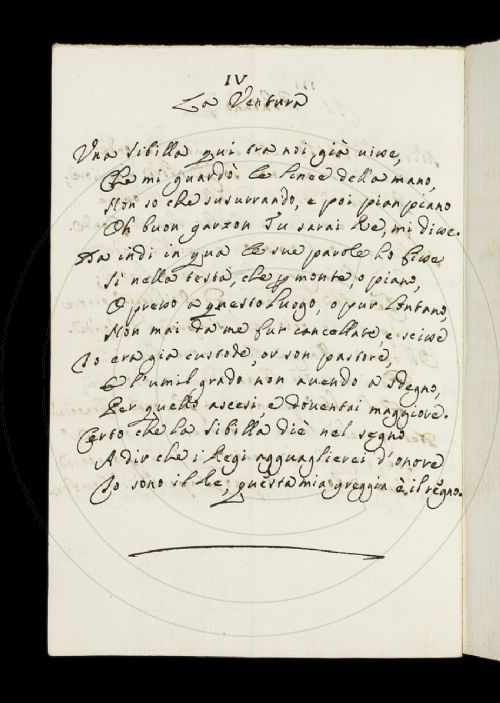 IV
La Ventura
Una Sibilla qui tra noi già visse,
Che mi guardò le linee della mano,
Non so che susurrando, e poi pian piano
Oh buon garzon Tu sarai Re, mi disse.
Da indi in qua le sue parole ho fisse
Sì nella testa, che p monte, o piano,
O presso a questo luogo, o pur lontano,
Non mai da me fur cancellate, e scisse
Io era già custode, or son pastore,
E l'umil grado non avendo a sdegno,
Per quello ascesi e doventai maggiore.
Certo che la Sibilla diè nel segno
A dir che i Regi agguaglierei d'onore
Io sono il Re, questa mia greggia è il regno.